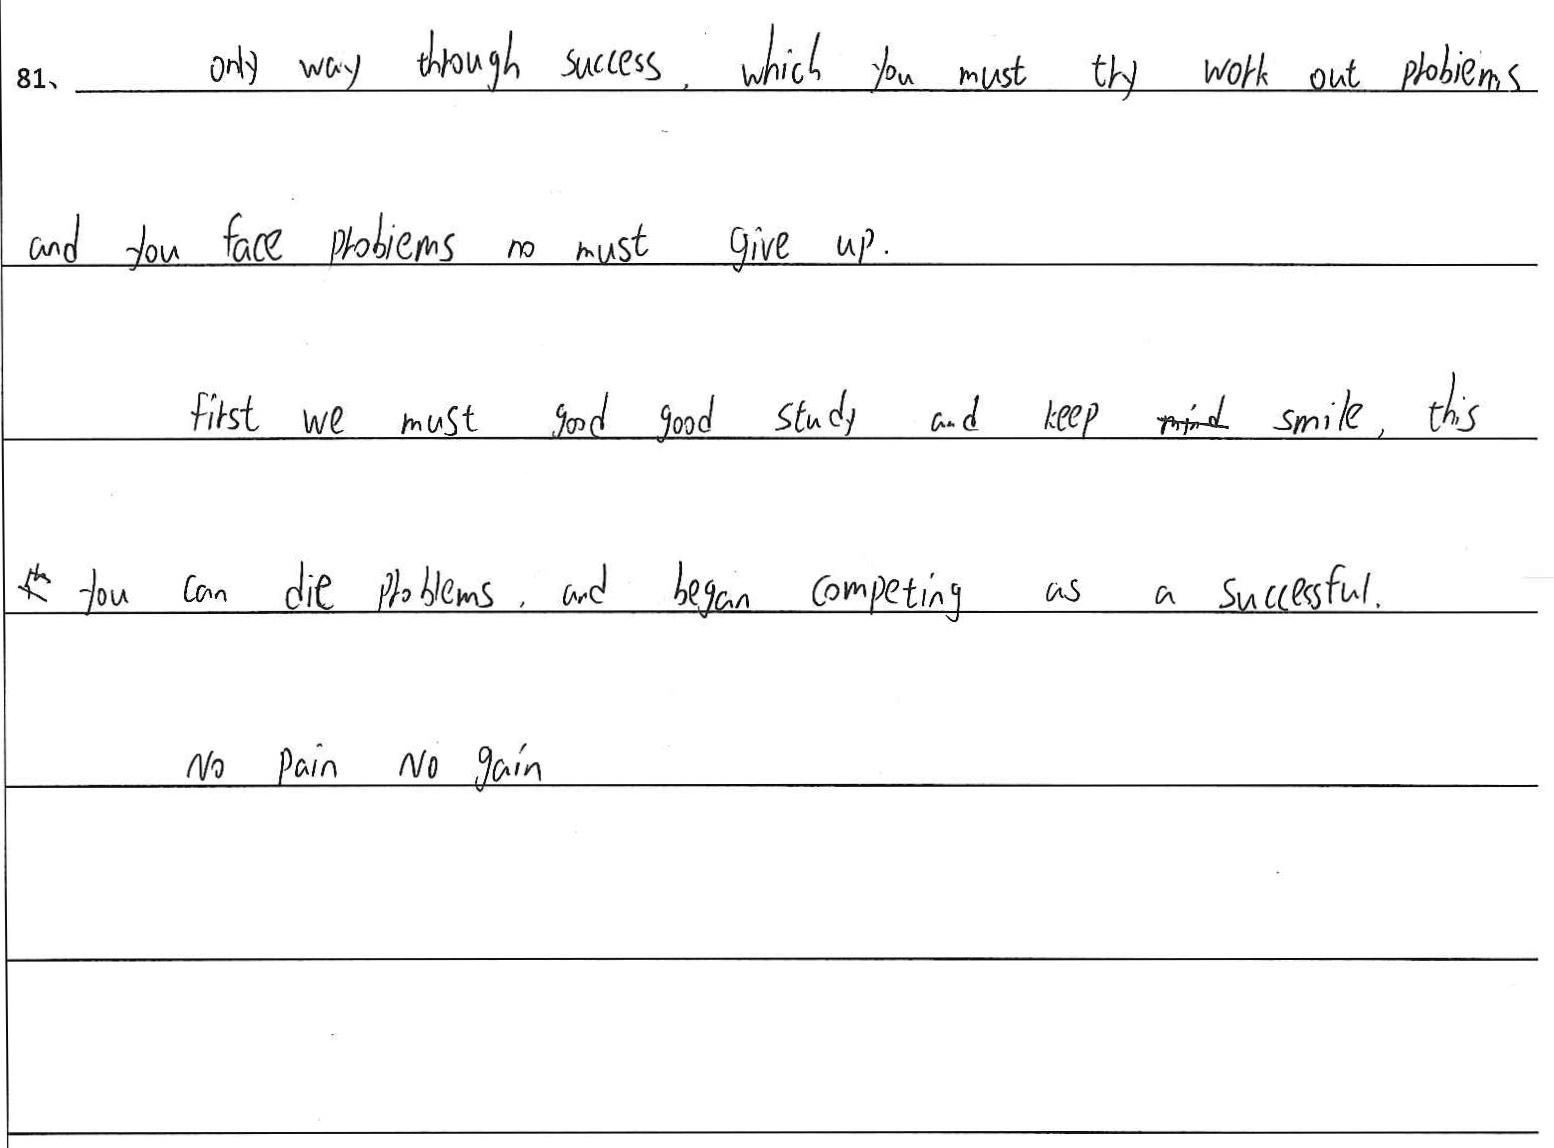 81、 only way through success, which you must try work out probiems
and you face probiems no must give up.
first we must good good study and keep smile, this
you can die problems, and began competing as a successful.
No pain No gain